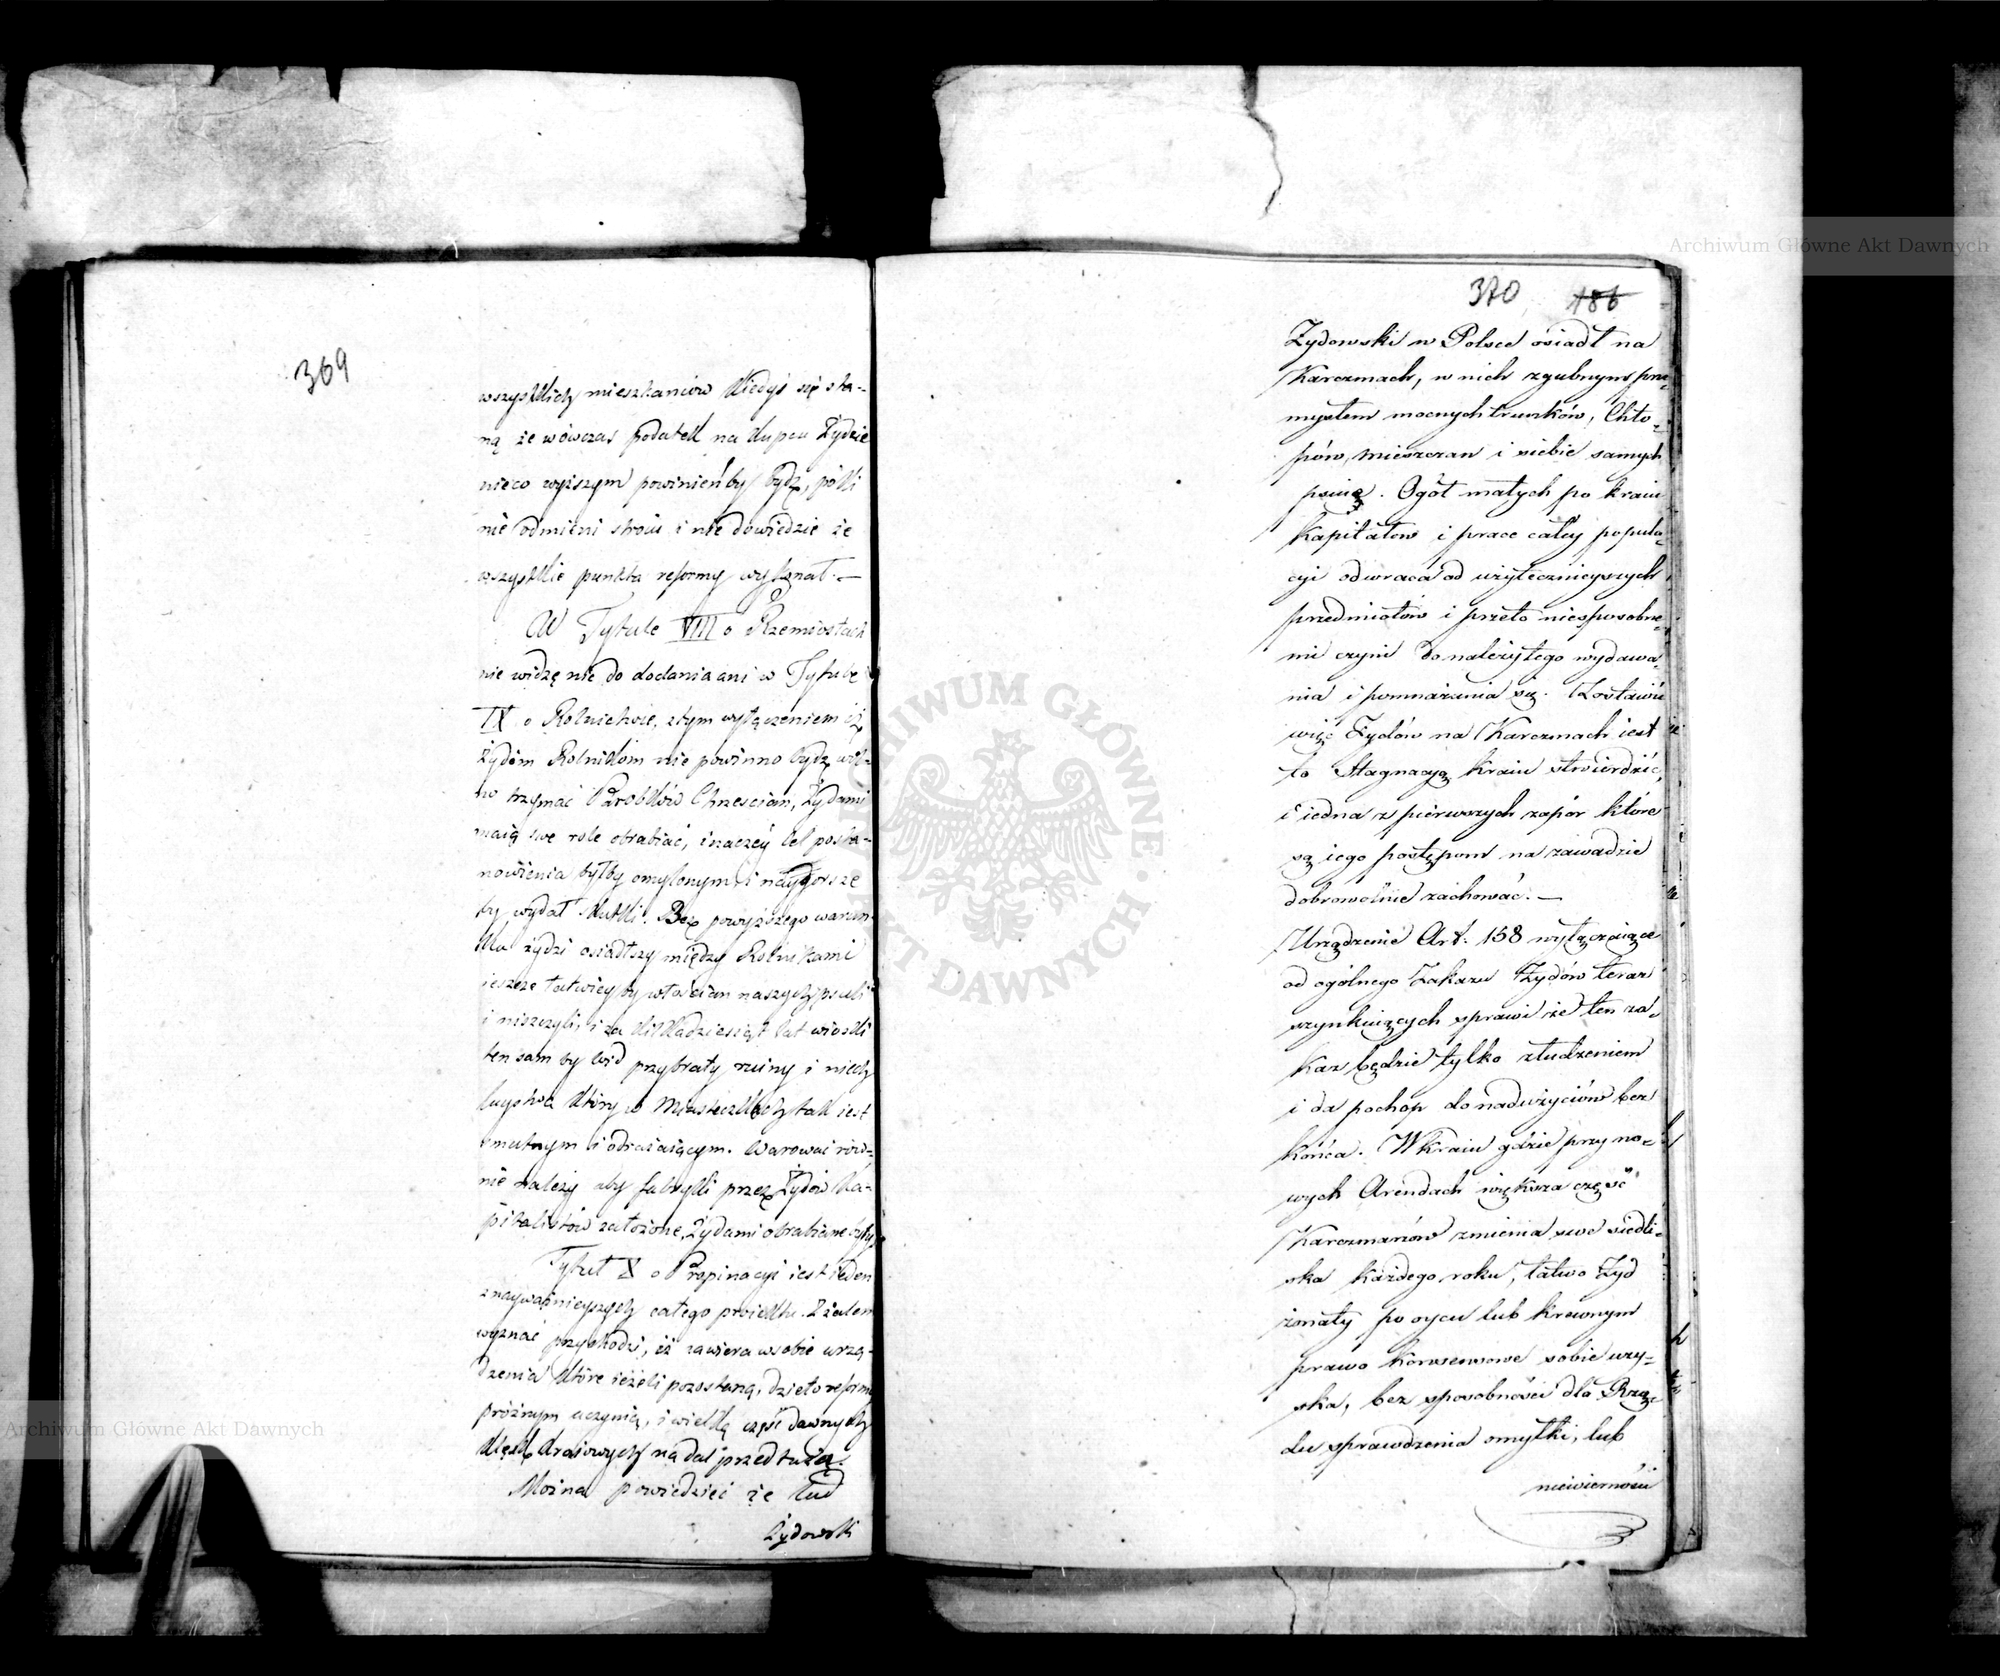 369
wszystkich mieszkańców kiedyś się sta-
ną że wówczas podatek na kupcu Żydzie
nieco wyższym powinieńby bydź, póki
nie odmieni stroiu i nie dowiedzie że
wszystkie punkta reformy wykonał. —
W Tytule VIII o Rzemiosłach
nie widzę nic do dodania ani w Tytule
IX o Rolnictwie, z tym wyłączeniem iż
Żydom Rolnikom nie powinno bydź wol-
no trzymać Parobków Chrześcian, Żydami
maią swe role obrabiać, inaczéy cel posta-
nowienia byłby omylonym i naygorsze
by wydał skutki. Bez powyższego warun-
ku żydzi osiadłszy między Rolnikami
ieszcze łatwiéy by włościan naszych psuli
i niszczyli, i za kilkadziesiąt lat wioski
ten sam by wid przybrały ruiny i niechlu
luystwa który w Miasteczkach tak iest
smutnym i odrażaiącym. Warować rów-
nie należy aby fabryki przez Żydów Ka-
pitalistów założone, Żydami obrabiane były.
Tytuł X o Propinacyi iest ieden
z nayważnieyszych całego proiektu. Z żalem
wyznać przychodzi, iż zawiera w sobie urzą-
dzenia które ieżeli pozostaną, dzieło reformy
próżnym uczynią, i wielką część dawnych
klęsk kraiowych na dal przedłużą.
Można powiedzieć że lud
Żydowski
370 186
Zydowski w Polsce osiadł na
Karczmach, w nich zgubnym prze-
mysłem mocnych trunków, Chło-
pów, mieszczan i siebie samych
psuię. Ogół małych po kraiu
kapitałów i prace całéy popula-
cyi odwraca od użytecznieyszych
przedmiotów i przeto niesposobne-
mi czyni do należytego wydawa-
nia i pomnażania się. Zostawić
więc Żydów na Karczmach iest
to Stagnacyą kraiu stwierdzić,
i iedna z pierwszych zapór które
są iego postępom na zawadzie
dobrowolnie zachować. —
Urządzenie Art. 158 wyłączaiące
od ogólnego Zakazu Żydów teraz
szynkuiących sprawi że ten za-
kaz będzie tylko złudzeniem
i da pochop do nadużyciów bez
końca. W kraiu gdzie przy no-
wych Arendach większa część
Karczmarzów zmienia swe siedli-
ska każdego roku, łatwo Żyd
żonaty po oycu lub krewnym
prawo konsensowe sobie uzy-
ska, bez sposobności dla Rzą-
du sprawdzenia omyłki, lub
niewierności
Archiwum Główne Akt Dawnych
Archiwum Główne Akt Dawnych
ARCHIWUM GŁÓWNE AKT DAWNYCH